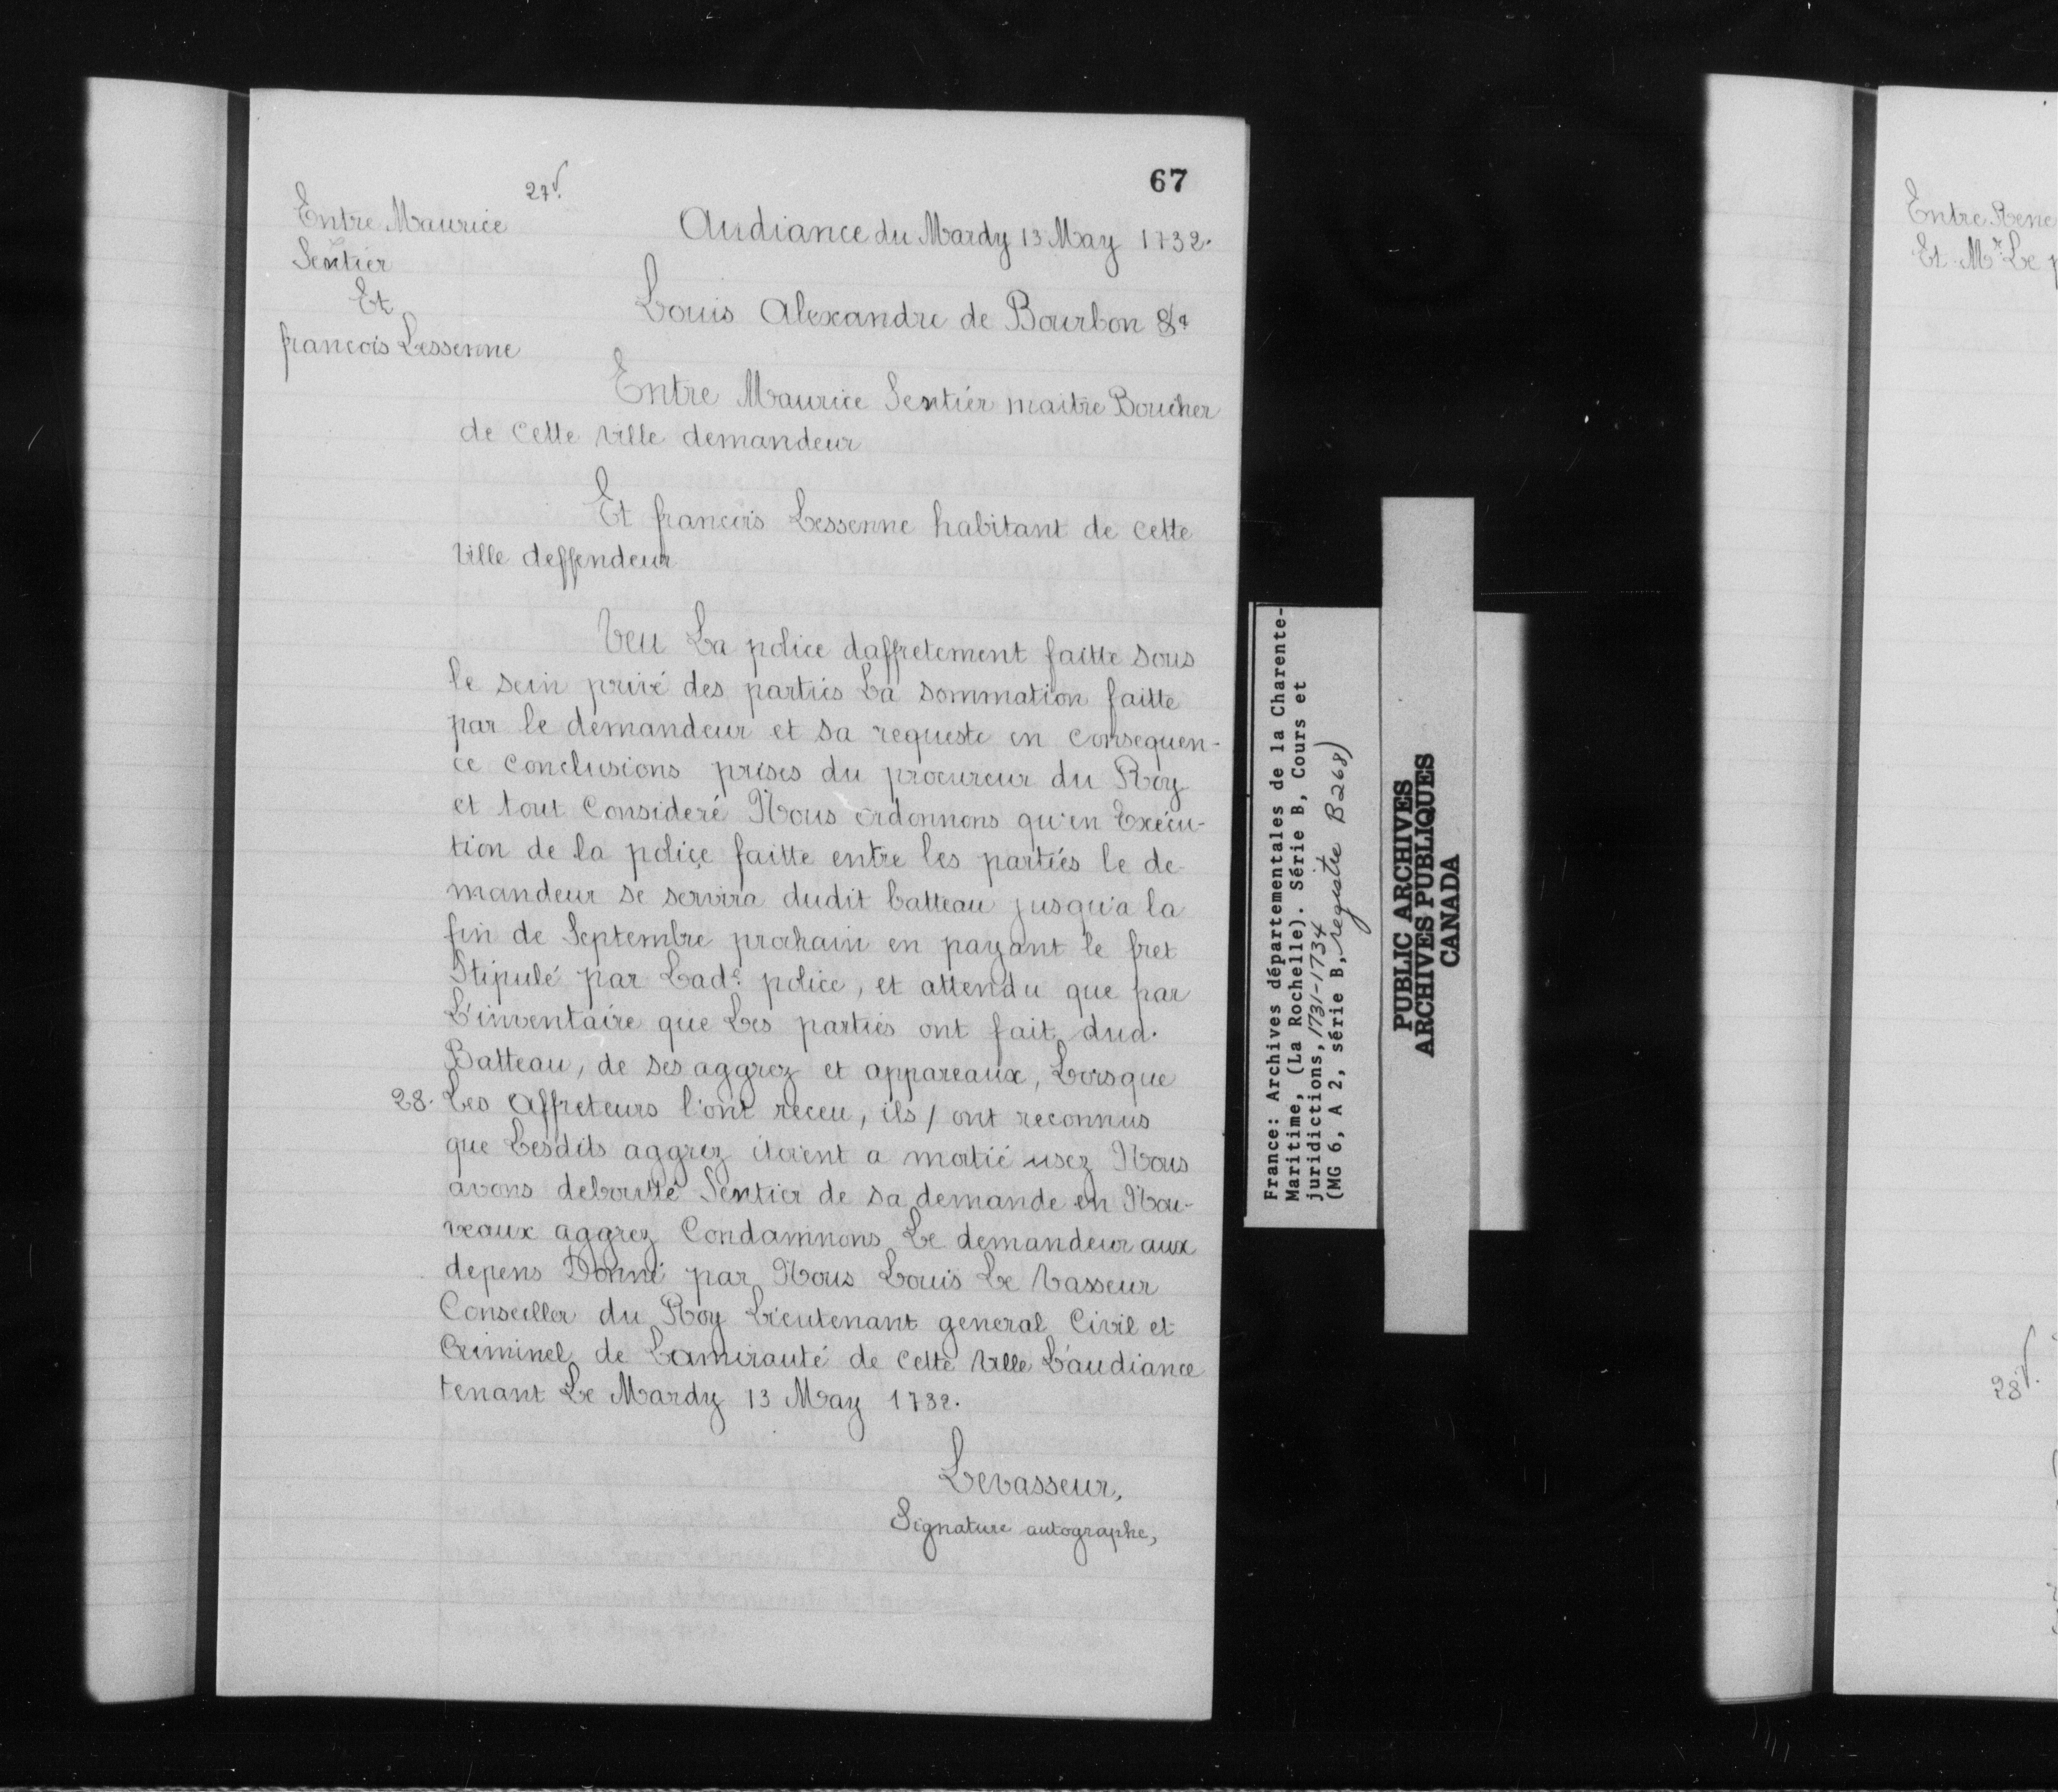 67
27v.
Entre Maurice
Sentier
Et
francois Lessenne
Audiance du Mardy 13 May 1732.
Louis Alexandre de Bourbon &a
Entre Maurice Sentier maitre Boucher
de cette Ville demandeur
Et francois Lessenne habitant de cette
Ville deffendeur
Veu La police daffretement faitte sous
le sein privé des parties La sommation faitte
par le demandeur et sa requeste en consequen-
ce conclusions prises du procureur du Roy
et tout Consideré Nous ordonnons qu'en Exécu-
tion de la police faitte entre les parties le de-
mandeur se servira dudit batteau jusqu'a la
fin de Septembre prochain en payant le fret
Stipulé par Lade police, et attendu que par
L'inventaire que Les parties ont fait dud.
Batteau, de ses aggrez et appareaux, Lorsque
28. Les Affreteurs l'ont receu, ils / ont reconnus
que Lesdits aggrez étoient a moitié usez Nous
avons deboutté Sentier de sa demande en Nou-
veaux aggrez Condamnons Le demandeur aux
depens Donné par Nous Louis Le Vasseur
Conseiller du Roy Lieutenant general Civil et
Criminel de Lamirauté de cette Ville L'audiance
tenant Le Mardy 13 May 1732.
Levasseur,
Signature autographe,
France: Archives départementales de la Charente-
Maritime, (La Rochelle). Série B, Cours et
juridictions, 1731-1734
(MG 6, A 2, série B, registre B268)
PUBLIC ARCHIVES
ARCHIVES PUBLIQUES
CANADA
Entre Rene
Et Mr Le
28v.